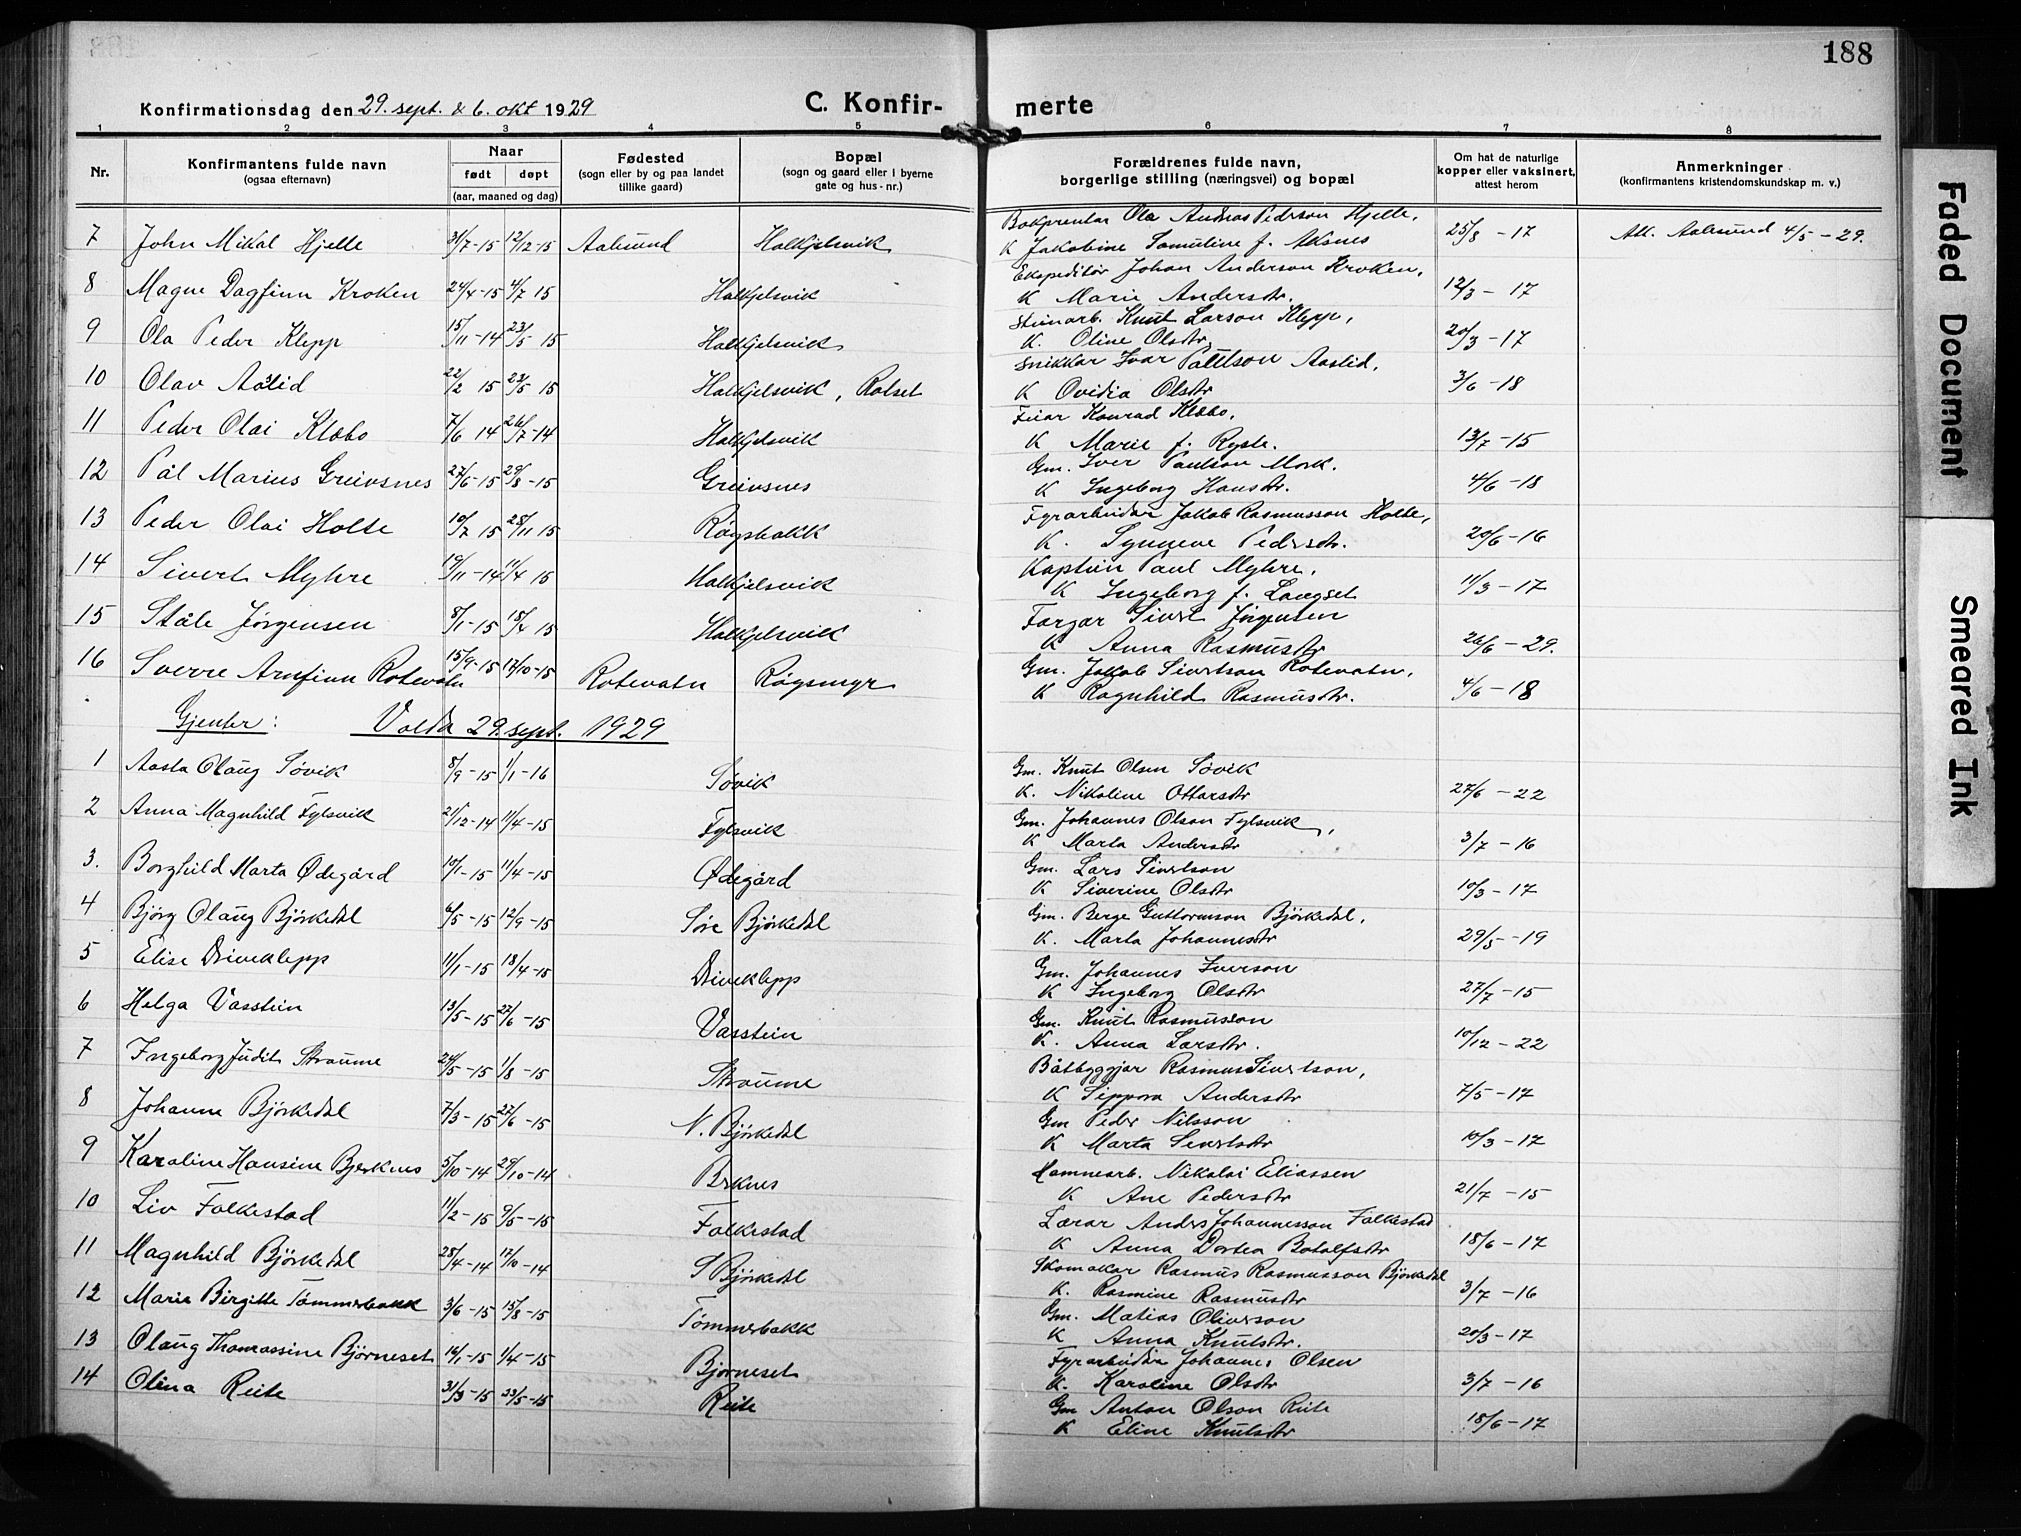 188
Konfirmationsdag den 29. sept. & 6. okt 1929
C. Konfir- merte
1 2 3 4 5 6 7 8
Nr.
Konfirmantens fulde navn
(ogsaa efternavn)
Naar
født døpt
(aar, maaned og dag)
Fødested
(sogn eller by og paa landet
tillike gaard)
Bopæl
(sogn og gaard eller i byerne
gate og hus-nr.)
Forældrenes fulde navn,
borgerlige stilling (næringsvei) og bopæl
Om hat de naturlige
kopper eller vaksinert,
attest herom
Anmerkninger
(konfirmantens kristendomskundskap m. v.)
7 John Mikal Hjelle 31/7-15 12/12-15 Aalesund Halkjelsvik Bokprentar Ola Andreas Pederson Hjelle, 25/8 - 17 Att. Aalesund 4/5 - 29.
K Jakobine Samuline f. Aksnes
8 Magne Dagfinn Kroken 24/4-15 4/7 15 Halkjelsvik Ekspeditør Johan Anderson Kroken, 12/3 - 17
K Marie Andersdtr.
9 Ola Peder Klepp 15/11-14 23/5 15 Halkjelsvik Steinarb. Knut Larson Klepp, 20/3 - 17
K. Oline Olsdtr
10 Olav Aaslid 22/2 15 23/5 15 Halkjelsvik, Rotset Snikkar Ivar Pettson Aaslid, 3/6 - 18
K Ovidia Olsdtr
11 Peder Olai Klæbo 7/6 14 26/7-14 Halkjelsvik Feiar Konrad Klæbo, 13/7 - 15
K Marie f. Ryste.
12 Pål Marius Greivsnes 27/6-15 29/8-15 Greivsnes Gm. Iver Paulson Mork. 4/6 - 18
K Ingeborg Hansdtr.
13 Peder Olai Holte 10/7 15 28/11 15 Røysbakk Fyrarbeider Jakob Rasmusson Holte, 20/6 - 16
K. Synneve Pedersdtr.
14 Sivert Myhre 19/11-14 11/4 15 Halkjelsvik Kaptein Paul Myhre, 11/3 - 17
K Ingeborg f. Langset
15 Ståle Jørgensen 8/1-15 18/4 15 Halkjelsvik Fargar Sivert Jørgensen 26/6 - 29.
K Anna Rasmusdtr
16 Sverre Arnfinn Rotevatn 15/9-15 17/10-15 Rotevatn Røysmyr Gm. Jakob Sivertson Rotevatn, 4/6 - 18
K Ragnhild Rasmusdtr.
Gjenter: Volda 29. sept. 1929
1 Aasta Olaug Søvik 8/9-15 1/1-16 Søvik Gm. Knut Olsen Søvik 27/6 - 22
K. Nikoline Ottarsdtr
2 Anna Magnhild Fylsvik 21/12-14 11/4-15 Fylsvik Gm. Johannes Olson Fylsvik, 3/7 - 16
K Marta Andersdtr
3. Borghild Marta Ødegård 10/1-15 11/4-15 Ødegård Gm. Lars Sivertson 10/3 - 17
K Siverine Olsdtr
4 Bjørg Olaug Bjørkedal 6/5-15 12/9-15 Søre Bjørkedal Gm. Berge Guttormson Bjørkedal, 29/5 - 19
K. Marta Johannesdtr
5 Elise Driveklepp 11/1-15 18/4-15 Driveklepp Gm. Johannes Iverson 27/7 - 15
K Ingeborg Olsdtr
6 Helga Vasstein 13/5-15 27/6-15 Vasstein Gm. Knut Rasmusson 10/12 - 22
K. Anna Larsdtr.
7 Ingeborg Judit Straume 24/5-15 1/8-15 Straume Båtbyggjar Rasmus Sivertson, 7/5 - 17
K Sippora Andersdtr
8 Johanne Bjørkedal 7/3-15 27/6-15 N. Bjørkedal Gm Peder Nilsson 10/3 - 17
K Marta Sivertsdtr
9 Karoline Hansine Bjerknes 5/10-14 29/10-14 Berknes Hamnearb. Nikolai Eliassen 21/7 - 15
K Ane Pedersdtr
10 Liv Folkestad 11/2-15 9/5-15 Folkestad Lærar Anders Johannesson Folkestad 18/6 - 17
K Anna Dortea Botolfsdtr
11 Magnhild Bjørkedal 28/4-14 17/10-14 S Bjørkedal Skomakar Rasmus Rasmusson Bjørkedal 3/7 - 16
K. Rasmine Rasmusdtr
12 Marie Birgitte Tømmerbakk 3/6-15 15/8-15 Tømmerbakk Gm. Matias Oliverson 20/3 - 17
K Anna Knutsdtr.
13 Olaug Thomassine Bjørneset 16/1-15 1/4-15 Bjørneset Fyrarbeider Johannes Olsen 3/7 - 16
K. Karoline Olsdtr
14 Olina Reite 31/3-15 23/5-15 Reite Gm Anton Olson Reite 18/6 - 17
K Eline Knutsdtr
Faded Document
Smeared Ink